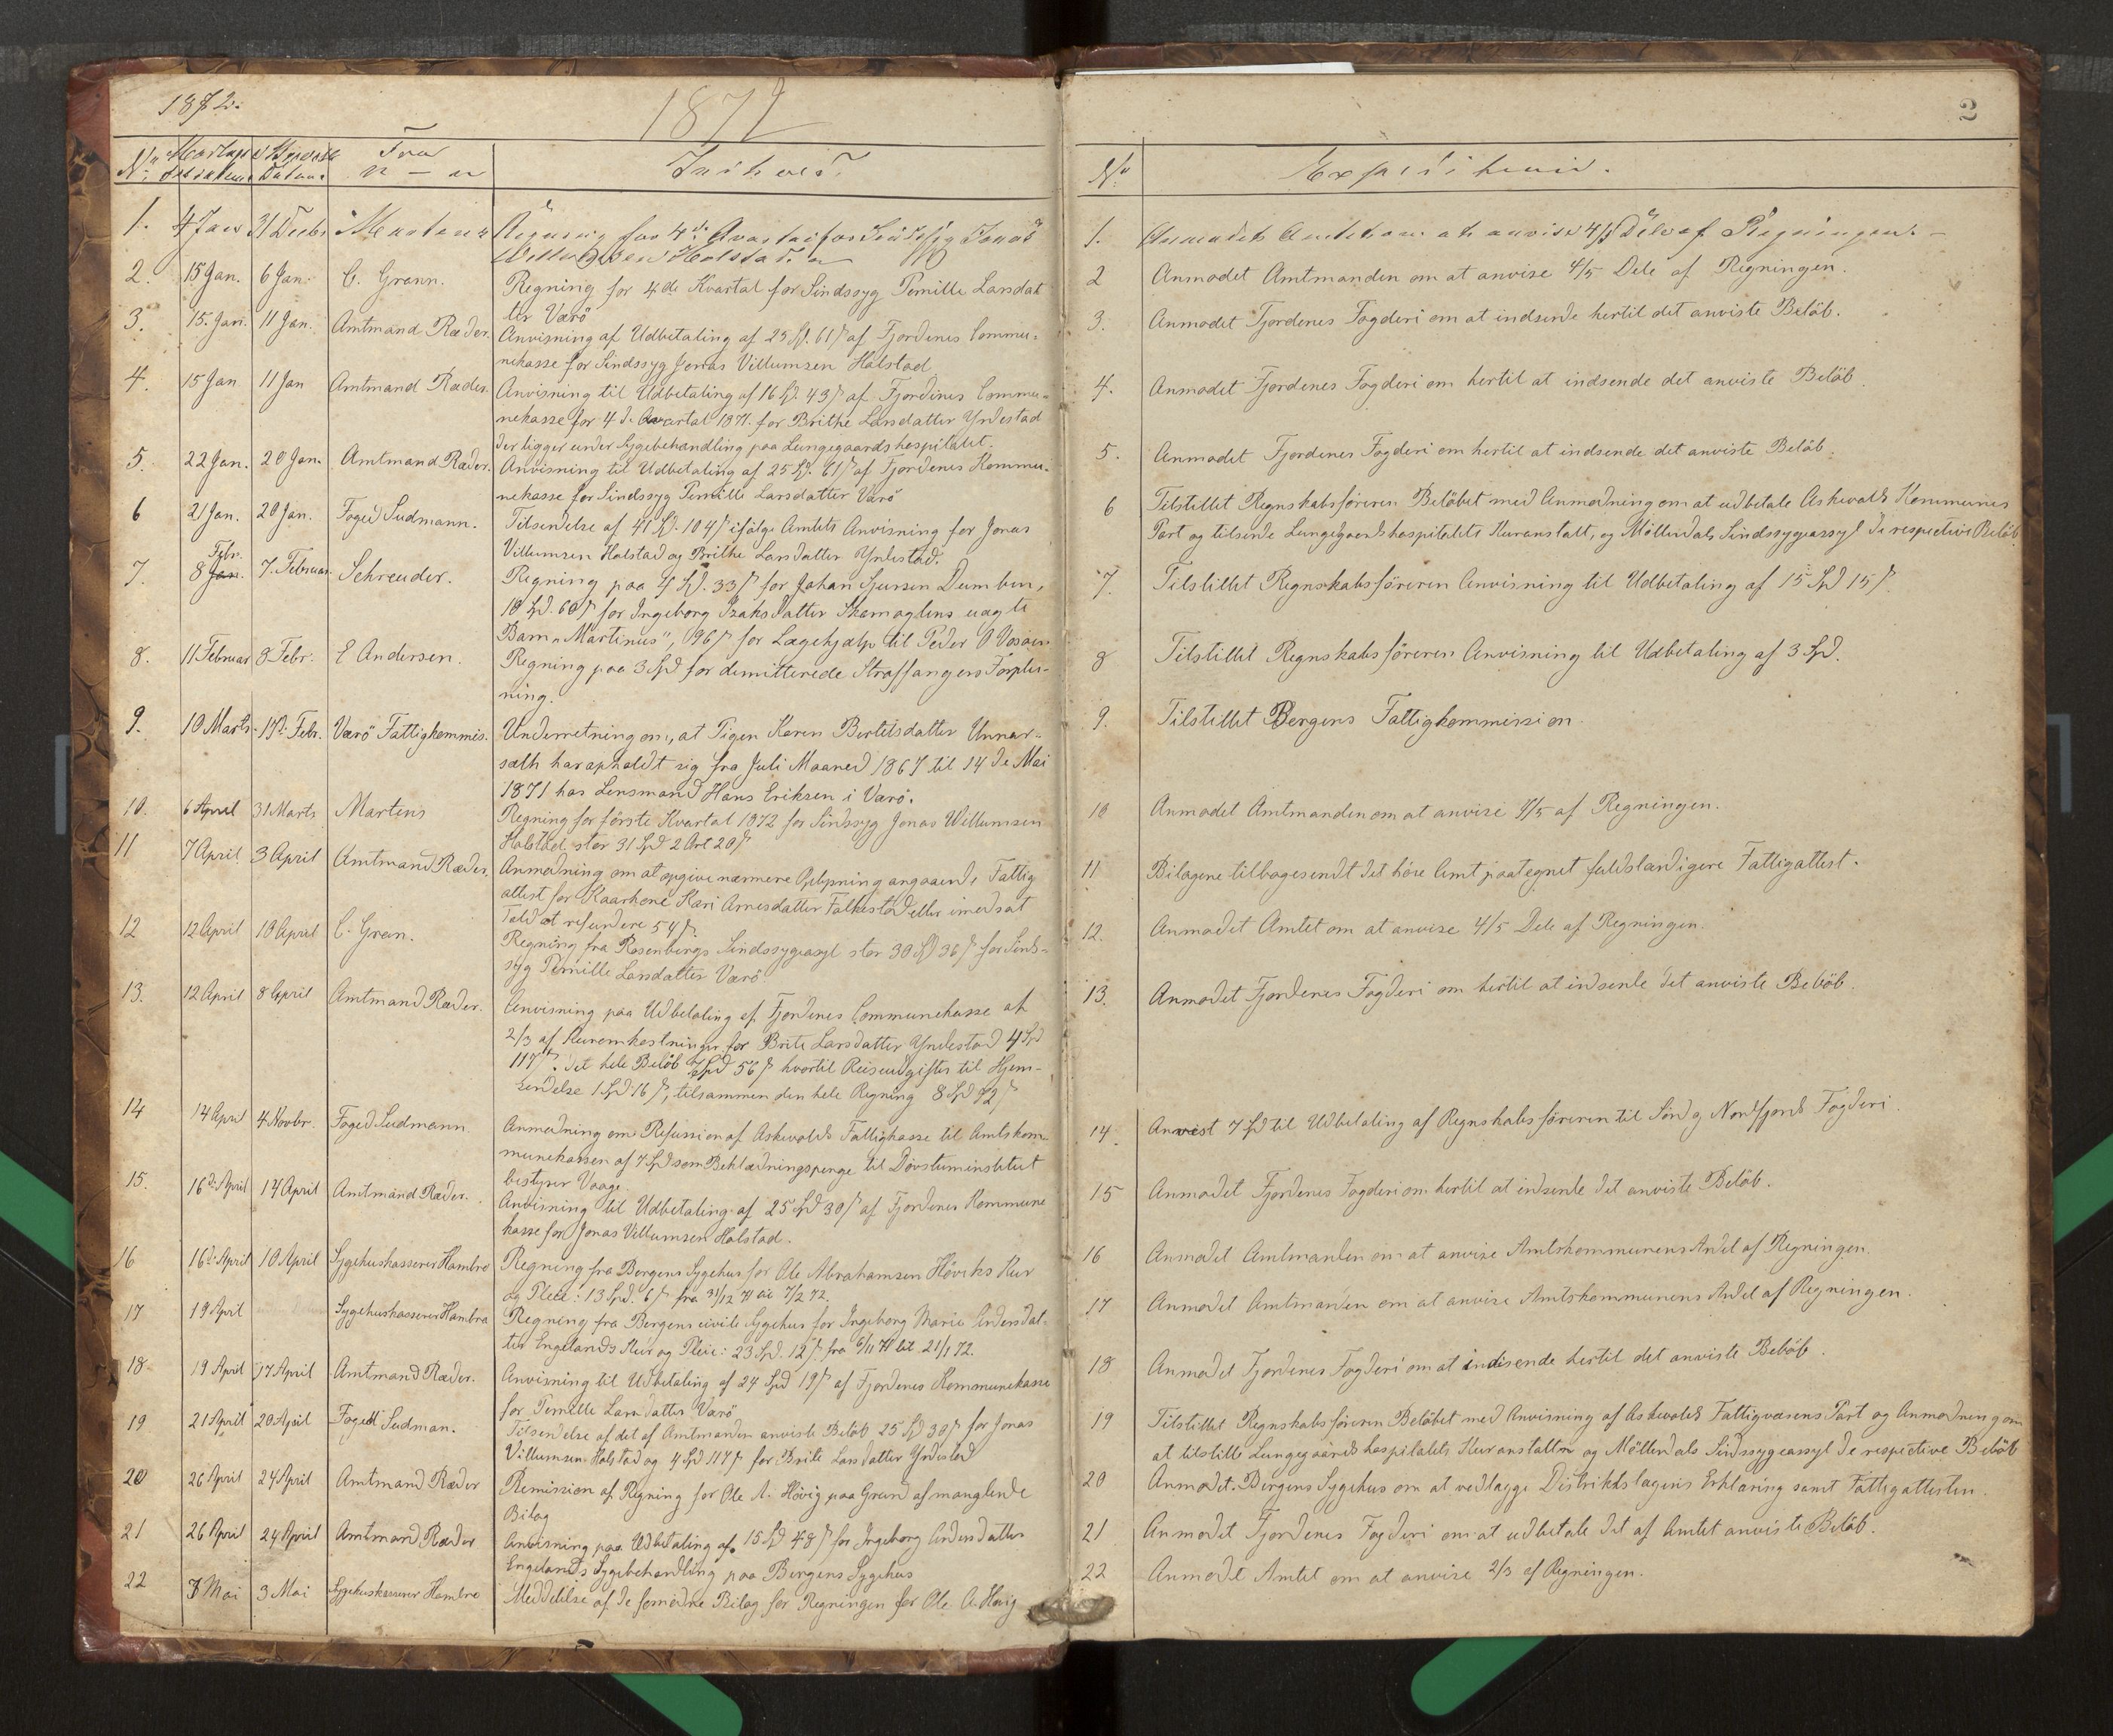 1872.
1872
No. Modtagelsesdatum Brevets Datum Fra hvem Indhold.
1. 4 Jan 31 Decbr Martens Regning for 4de Qvartal for Sindssyg Jonas
Willumsen Holstad
2. 15 Jan. 6 Jan. C. Grann. Regning for 4de Kvartal for Sindssyg Pernille Larsdat
ter Værö
3. 15. Jan. 11 Jan. Amtmand Ræder. Anvisning af Udbetaling af 25 Spd. 61 s af Fjordenes Commu-
nekasse for Sindssyg Jonas Villumsen Holstad
4. 15 Jan 11 Jan Amtmand Ræder. Anvisning til Udbetaling af 16 Spd. 43 s af Fjordenes Commu-
nekasse for 4de Qvartal 1871. for Brithe Larsdatter Yndestad
der ligger under Sygebehandling paa Lungegaardshospitalet.
5. 22 Jan. 20 Jan. Amtmand Ræder. Anvisning til Udbetaling af 25 Spd. 61 s af Fjordenes Kommu-
nekasse for Sindssyg Pernille Larsdatter Værö
6 21 Jan. 20 Jan. Foged Sudmann. Tilsendelse af 41 Spd. 104 s ifølge Amtets Anvisning for Jonas
Villumsen Holstad og Brithe Larsdatter Yndestad.
7. 8 Febr. 7. Februar Schreuder. Regning paa 4 Spd. 33 s for Johan
10 Spd. 60 s for Ingeborg Izaksdatter uægte
Barn "Martinus", 96 s for Lægehjælp til Peder O
8. 11 Februar 8 Febr. E Andersen. Regning paa 3 Spd for dimitterede Straffangers Forplei-
ning.
9. 10 Marts. Febr. Værö Fattigkommis. Underretning om, at Pigen Karen Bertelsdatter Unnar-
sæth har opholdt sig fra Juli Maaned 1867 til 14de Mai
1871 hos Lensmand Hans Eriksen i Værö.
10. 6 April 31 Marts Martens Regning for förste Kvartal 1872 for Sindssyg Jonas Willumsen
Holstad stor 31 Spd 2 Ort 20 s
11 7 April 3 April Amtmand Ræder. Anmodning om at opgive nærmere Oplysning angaaende Fattig
attest for Kaarkone Kari Arnesdatter Falkestad eller imodsat
Fald at refundere 54 s.
12 12 April 10 April C. Gran. Regning fra Rosenbergs Sindssygeasyl stor 30 Spd 36 s for Sinds-
syg Pernille Larsdatter Værö
13. 12 April 8 April Amtmand Ræder. Anvisning paa Udbetaling af Fjordenes Communekasse af
2/3 af Kuromkostninger for Brite Larsdatter Yndestad 4 Spd
117 s. det hele Beløb 7 Spd 56 s hvortil Reiseudgifter til Hjem-
sendelse 1 Spd 16 s, tilsammen den hele Regning 8 Spd 72 s
14 14 April 4 Novbr. Foged Sudmann. Anmodning om Refusion af Askevolds Fattigkasse til Amtskom-
munekassen af 7 Spd som Beklædningspenge til Døvstuminstitut
bestyrer Vaage.
15. 16de April 14 April Amtmand Ræder. Anvisning til Udbetaling af 25 Spd 30 s af Fjordenes Kommune
kasse for Jonas Villumsen Holstad.
16 16de April 10 April Sygehuskasserer Hambro Regning fra Bergens Sygehus for Ole Abrahamsen Höviks Kur
og Pleie: 13 Spd. 6 s fra 31/12 71 til 7/2 72.
17 19 April Sygehuskasserer Hambro Regning fra Bergens civile Sygehus for Ingeborg Marie Andersdat-
ter Engelands Kur og Pleie: 23 Spd. 12 s fra 6/11 71 til 21/1 72.
18 19 April 17 April Amtmand Ræder. Anvisning til Udbetaling af 24 Spd 19 s af Fjordenes Kommunekasse
for Pernille Larsdatter Værö
19 21 April 20 April Foged Sudman. Tilsendelse af det af Amtmanden anviste Beløb 25 Spd 30 s for Jonas
Villumsen Holstad og 4 Spd 117 s for Brite Larsdatter Yndestad
20 26 April 24 April Amtmand Ræder Remission af Regning for Ole A. Hövig paa Grund af manglende
Bilag
21 26 April 24 April Amtmand Ræder Anvisning paa Udbetaling af 15 Spd 48 s for Ingeborg Andersdatter
Engelands Sygebehandling paa Bergens Sygehus
22 7 Mai 3 Mai Sygehuskasserer Hambro Meddelelse af de fornødne Bilag for Regningen for Ole A. Hövig
2
No Expeditionen.
1. Anmodet Amtet om at anvise 4/5 Dele af Regningen. -
2 Anmodet Amtmanden om at anvise 4/5 Dele af Regningen.
3. Anmodet Fjordenes Fogderi om at indsende hertil det anviste Beløb.
4. Anmodet Fjordenes Fogderi om hertil at indsende det anviste Beløb
5. Anmodet Fjordenes Fogderi om hertil at indsende det anviste Beløb.
6 Tilstillet Regnskabsføreren Beløbet med Anmodning om at udbetale Askevolds Kommunes
Part og tilsende Lungegaardshospitalets Kuranstalt, og Möllendals Sindssygeasyl de respective Beløb.
7. Tilstillet Regnskabsföreren Anvisning til Udbetaling af 15 Spd 15 s.
8 Tilstillet Regnskabsföreren Anvisning til Udbetaling af 3 Spd.
9. Tilstillet Bergens Fattigkommission.
10 Anmodet Amtmanden om at anvise 4/5 af Regningen.
11 Bilagene tilbagesendt det höie Amt paategnet fuldstændigere Fattigattest.
12. Anmodet Amtet om at anvise 4/5 Dele af Regningen.
13. Anmodet Fjordenes Fogderi om hertil at indsende det anviste Beløb.
14. Anvist 7 Spd til Udbetaling af Regnskabsföreren til Sönd og Nordfjords Fogderi.
15 Anmodet Fjordenes Fogderi om hertil at indsende det anviste Beløb.
16 Anmodet Amtmanden om at anvise Amtskommunens Andel af Regningen.
17 Anmodet Amtmanden om at anvise Amtskommunens Andel af Regningen.
18 Anmodet Fjordenes Fogderi om at indsende hertil det anviste Beløb.
19 Tilstillet Regnskabsføreren Beløbet med Anvisning af Askevolds Fattigvæsens Part og Anmodning om
at tilstille Lungegaardshospitalets Kuranstalten og Möllendals Sindssygeassyl de respective Beløb
20 Anmodet Bergens Sygehus om at vedlægge Distriktslægens Erklæring samt Fattigattesten.
21 Anmodet Fjordenes Fogderi om at udbetale det af Amtet anviste Beløb.
22 Anmodet Amtet om at anvise 2/3 af Regningen.